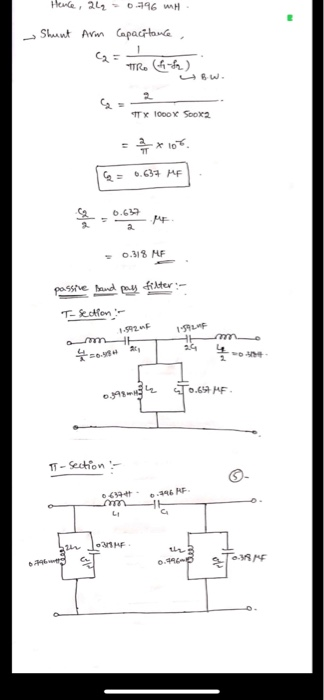 Hence, 2L₂ = 0.796 mH.
→ Shunt Arm Capacitance,
C₂ = 1 / πR₀ (f₁-f₂)
↳ B.W.
C₂ = 2 / π x 1000 x 500x2
= 2/π x 10⁻⁶.
C₂ = 0.637 MF
C₂/2 = 0.637/2 MF.
= 0.318 MF
passive band pass filter:-
T-Section:-
1.592nF 1.592nF
L₁/2 2C₁ 2C₁ L₁/2
0.398mH L₂ C₂ 0.637 MF.
π-Section:-
⑤-
0.637H 0.796 nF.
L₁ C₁
2L₂ 2L₂
0.796mH C₂/2 0.796mH C₂/2 0.318 MF